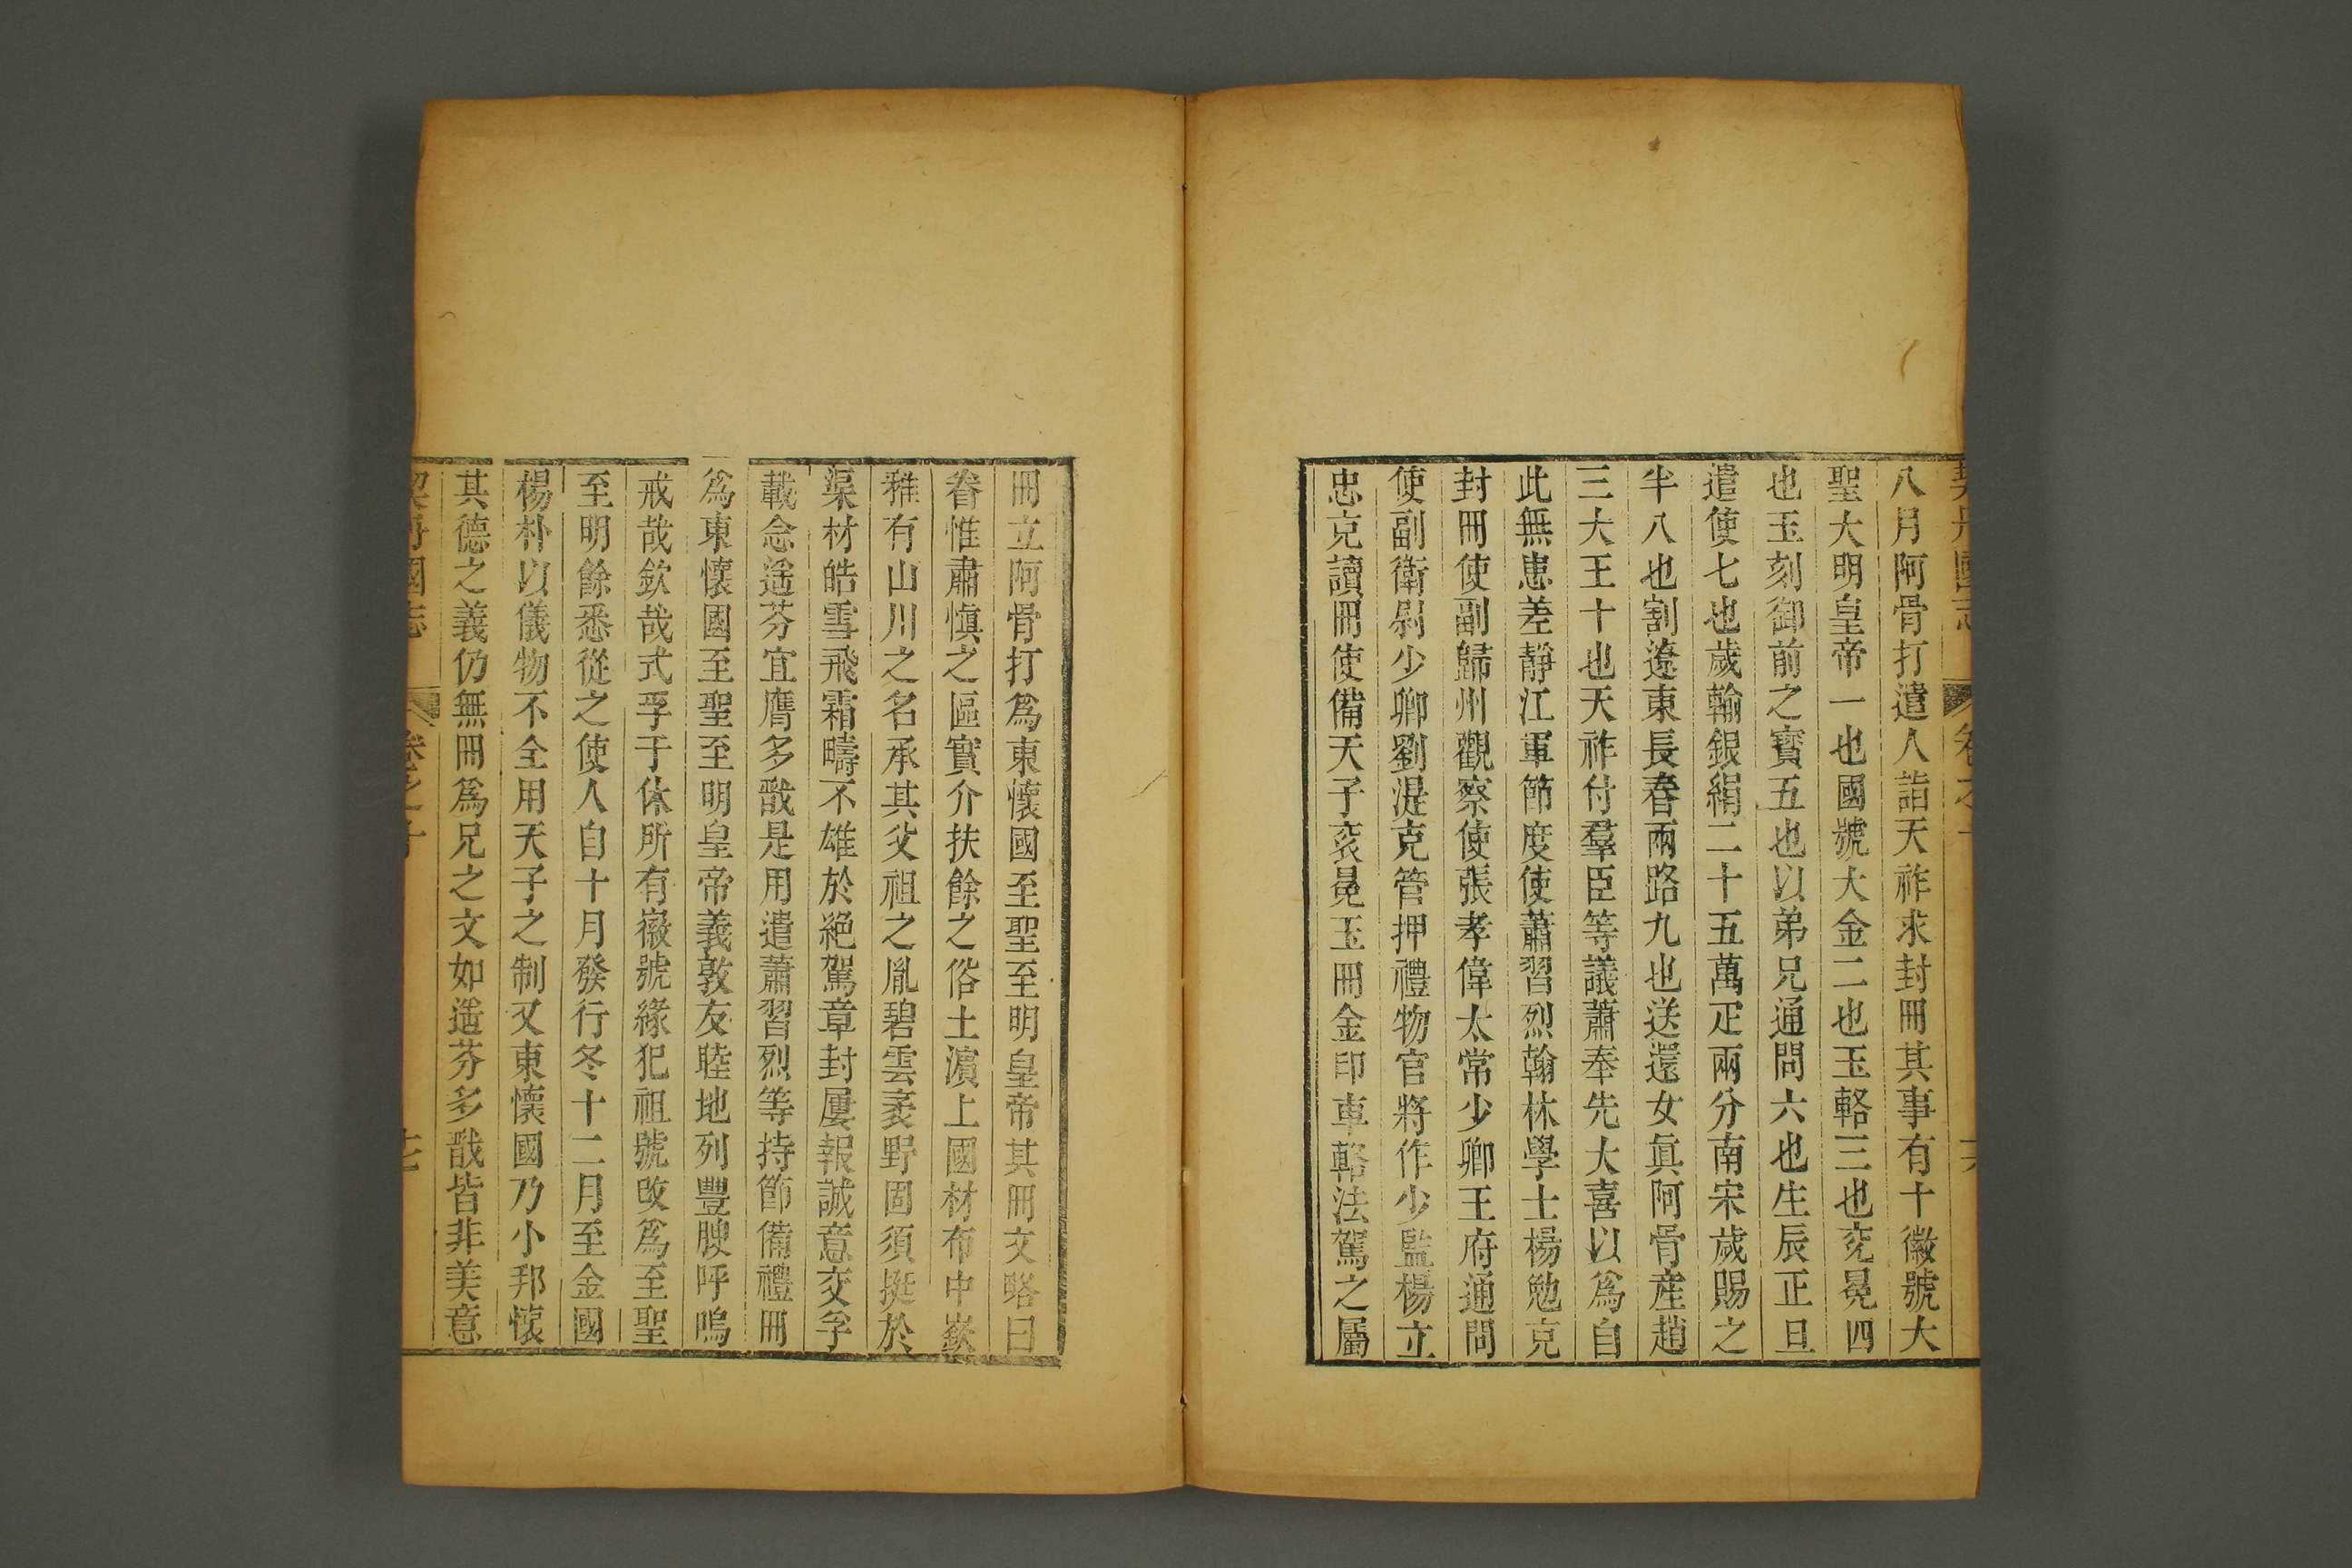 契丹國志 卷之十 十六
八月阿骨打遣人詣天祚求封冊其事有十徽號大
聖大明皇帝一也國號大金二也玉輅三也袞冕四
也玉刻御前之寳五也以弟兄通問六也生辰正旦
遣使七也歲輸銀絹二十五萬疋兩分南宋歲賜之
半八也割遼東長春兩路九也送還女眞阿骨産趙
三大王十也天祚付羣臣等議蕭奉先大喜以爲自
此無患差靜江軍節度使蕭習烈翰林學士楊勉克
封冊使副歸州觀察使張孝偉太常少卿王府通問
使副衛尉少卿劉湜克管押禮物官將作少監楊立
忠克讀冊使備天子衮冕玉冊金印車輅法駕之屬
冊立阿骨打爲東懷國至聖至明皇帝其冊文略曰
眷惟肅愼之區實介扶餘之俗土濵上國材布中嶔
雅有山川之名承其父祖之胤碧雲袤野固須挺於
渠材皓雪飛霜疇不雄於絶駕章封屢報誠意交孚
載念遥芬宜膺多戩是用遣蕭習烈等持節備禮冊
爲東懷國至聖至明皇帝義敦友睦地列豐腴呼嗚
戒哉欽哉式孚于休所有徽號緣犯祖號改爲至聖
至明餘悉從之使人自十月發行冬十二月至金國
楊朴以儀物不全用天子之制又東懷國乃小邦懷
其德之義仍無冊爲兄之文如遥芬多戩皆非美意
契丹國志 卷之十 十七